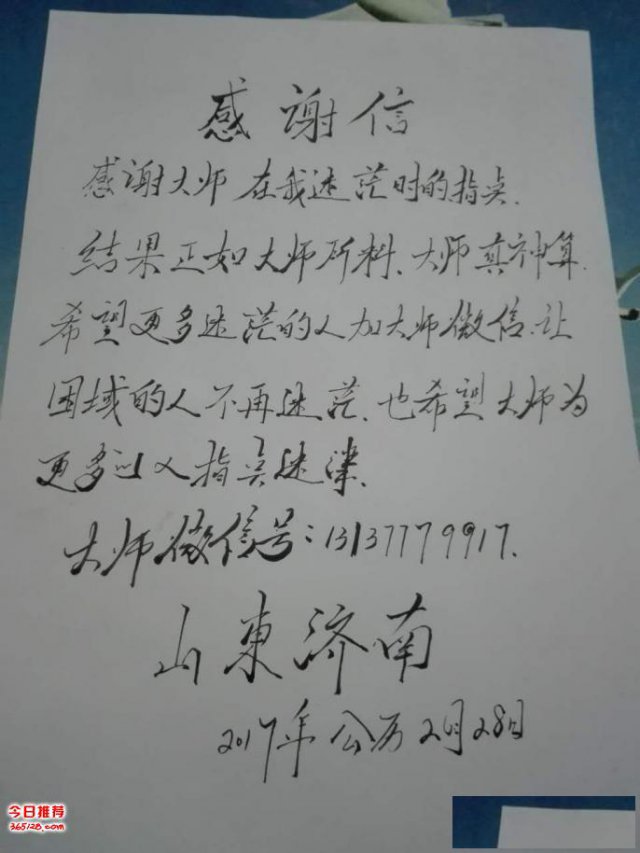 感谢信
感谢大师在我迷茫时的指点.
结果正如大师所料、大师真神算.
希望更多迷茫的人加大师微信.让
困域的人不再迷茫、也希望大师为
更多的人指点迷津.
大师微信号:13137779917.
山東济南
2017年公历2月28日
今日推荐
365128.com